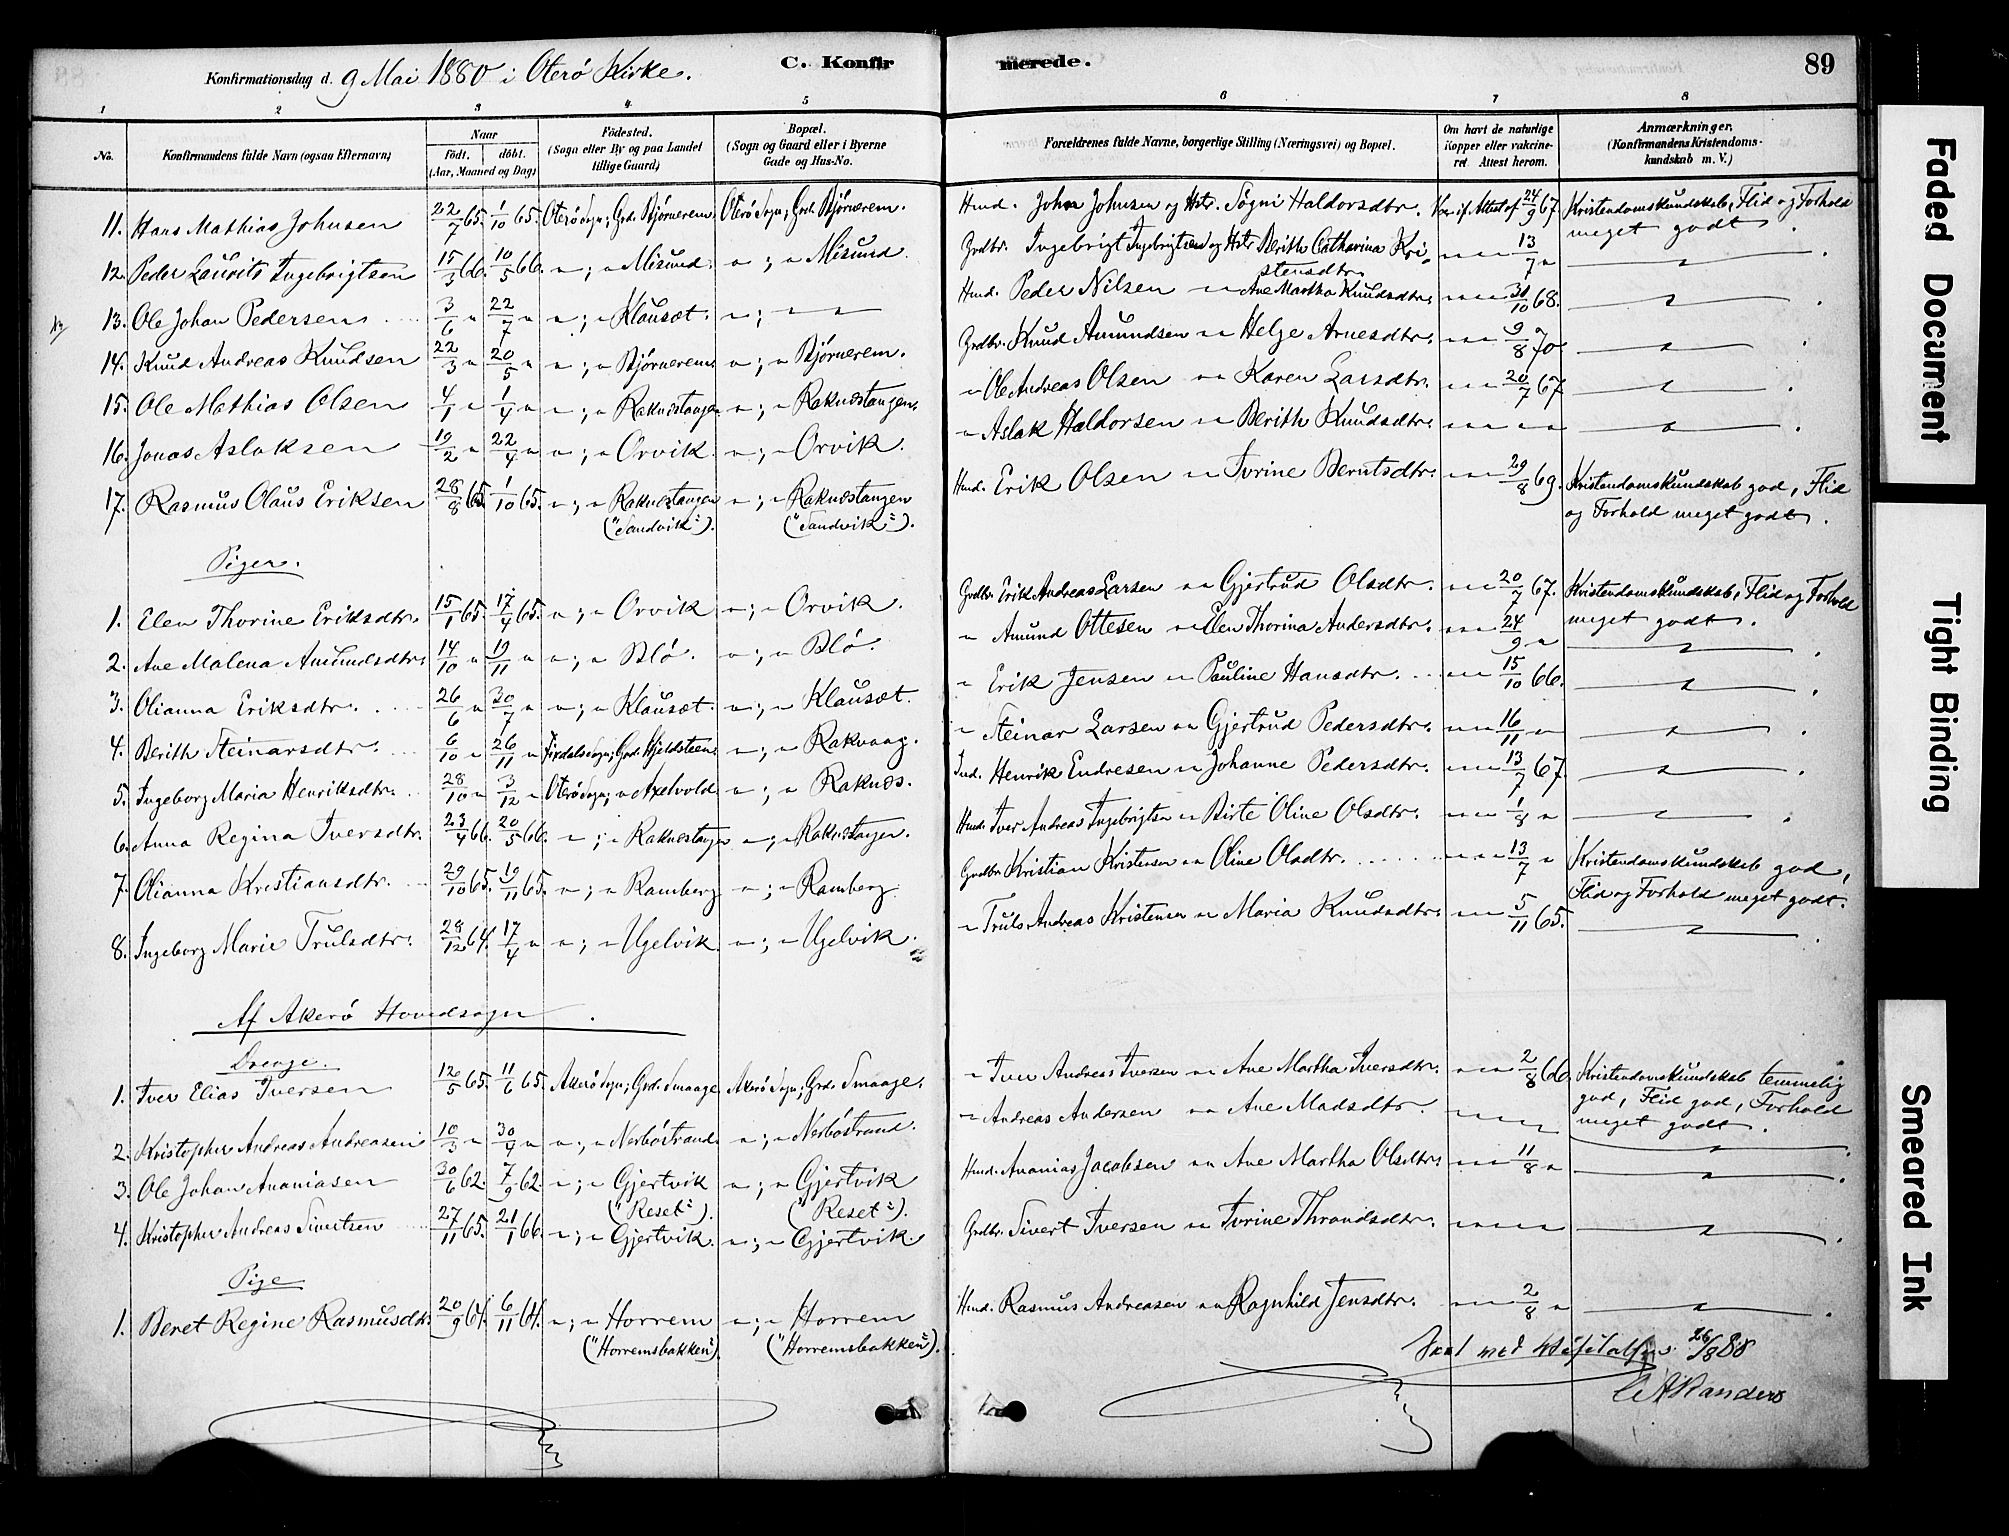 Konfirmationsdag d. 9 Mai 1880 i Oterö Kirke. C. Konfirmerede. 89
1 2 3 4 5 6 7 8
No. Konfirmandens fulde Navn (ogsaa Efternavn) Naar födt. döbt. (Aar, Maaned og Dag) Födested. (Sogn eller By og paa Landet tillige Gaard) Bopæl. (Sogn og Gaard eller i Byerne Gade og Hus-No. Forældrenes fulde Navne, borgerlige Stilling (Næringsvei) og Bopæl. Om havt de naturlige Kopper eller vaccineret. Attest herom. Anmærkninger. (Konfirmandens Kristendomskundskab m. V.)
11. Hans Mathias Johnsen 22/7 65. 1/10 65. Oterö Sogn; Grd. Björnerem. Oterö Sogn; Grd. Björnerem. Hmd. John Johnsen og Hstr. Sögni Haldorsdtr. Vac. if. Attest af 24/9 67. Kristendomskundskab, Flid og Forhold meget godt.
12. Peder Laurits Ingebrigtsen 15/3 66. 10/5 66. " ; " Misund. " ; " Misund. Grdbr. Ingebrigt Ingebrigtsen og Hstr. Berith Catharina Kristensdtr. " " " 13/7 " "
13. Ole Johan Pedersen 3/6 " 22/7 " " ; " Klausæt. " ; " " Hmd. Peder Nilsen " " Ane Martha Knudsdtr. " " " 31/10 68. "
14. Knud Andreas Knudsen 22/3 " 20/5 " " ; " Björnerem " ; " Björnerem. Grdbr. Knud Amundsen " " Helge Arnesdtr. " " " 9/8 70 "
15. Ole Mathias Olsen 4/1 " 1/4 " " ; " Raknæstangen " ; " Raknæstangen. " Ole Andreas Olsen " " Karen Larsdtr. " " " 20/7 67 "
16. Jonas Aslaksen 19/2 " 22/4 " " ; " Orvik. " ; " Orvik. " Aslak Haldorsen " " Berith Knudsdtr. " " " " " "
17. Rasmus Olaus Eriksen 28/8 65. 1/10 65. " ; " Raknæstangen ("Sandvik"). " ; " Raknæstangen ("Sandvik"). Hmd. Erik Olsen " " Torine Berntsdtr. " " " 29/8 69. Kristendomskundskab god, Flid og Forhold meget godt.
Piger.
1. Elen Thorine Eriksdtr. 15/1 65. 17/4 65. " ; " Orvik " ; " Orvik. Grdbr. Erik Andreas Larsen " " Gjertrud Olsdtr. " " " 20/7 67. Kristendomskundskab, Flid og Forhold meget godt.
2. Ane Malena Amundsdtr. 14/10 " 19/11 " " ; " Blö. " ; " Blö. " Amund Ottesen " " Elen Thorina Andersdtr. " " " 24/9 " "
3. Olianna Eriksdtr. 26/6 " 30/7 " " ; " Klausæt. " ; " Klausæt. " Erik Jensen " " Pauline Hansdtr. " " " 15/10 66. "
4. Berith Steinarsdtr. 6/10 " 26/11 " Fixdals Sogn; Grd. Hjeldsteen " ; " Rakvaag. " Steinar Larsen " " Gjertrud Pedersdtr. " " " 16/11 " "
5. Ingeborg Maria Henriksdtr. 28/10 " 3/12 " Oterö Sogn; " Axelvold. " ; " Raknæs. Ind. Henrik Endresen " " Johanne Pedersdtr. " " " 13/7 67. "
6. Anna Regina Iversdtr. 23/4 66. 20/5 66. " ; " Raknæstangen " ; " Raknæstangen. Hmd. Iver Andreas Ingebrigtsen " " Birte Oline Olsdtr. " " " 1/8 " "
7. Olianna Kristiansdtr. 29/10 65. 19/11 65. " ; " Ramberg " ; " Ramberg. Grdbr. Kristian Kristensen " " Oline Olsdtr. " " " 13/7 " Kristendomskundskab god, Flid og Forhold meget godt.
8. Ingeborg Marie Trulsdtr. 28/12 64. 17/4 " " ; " Ugelvik " ; " Ugelvik. " Truls Andreas Kristensen " " Maria Knudsdtr. " " " 5/11 65. "
Af Akerö Hovedsogn.
Drenge.
1. Iver Elias Iversen 12/5 65. 11/6 65. Akerö Sogn; Grd. Smaage. Akerö Sogn; Grd. Smaage. " Iver Andreas Iversen " " Ane Martha Iversdtr. " " " 2/8 66. Kristendomskundskab temmelig god, Flid god, Forhold meget godt.
2. Kristopher Andreas Andreasen 10/3 " 30/4 " " ; " Nerböstrand. " ; " Nerböstrand. " Andreas Andersen " " Ane Madsdtr. " " " " "
3. Ole Johan Ananiasen 30/6 62. 7/9 62. " ; " Gjertvik ("Reset"). " ; " Gjertvik ("Reset"). Hmd. Ananias Jacobsen " " Ane Martha Olsdtr. " " " 11/8 " "
4. Kristopher Andreas Sivertsen 27/11 65. 21/1 66. " ; " Gjertvik. " ; " Gjertvik. Grdbr. Sivert Iversen " " Torine Throndsdtr. " " " " "
Pige
1. Beret Regine Rasmusdtr. 20/9 64. 6/11 64. " ; " Horrem ("Horremsbakken"). " ; " Horrem ("Horremsbakken"). Hmd. Rasmus Andreasen " " Ragnhild Jensdtr. " " " 2/8 " "
26/8 88
C A Randers
Faded Document
Tight Binding
Smeared Ink